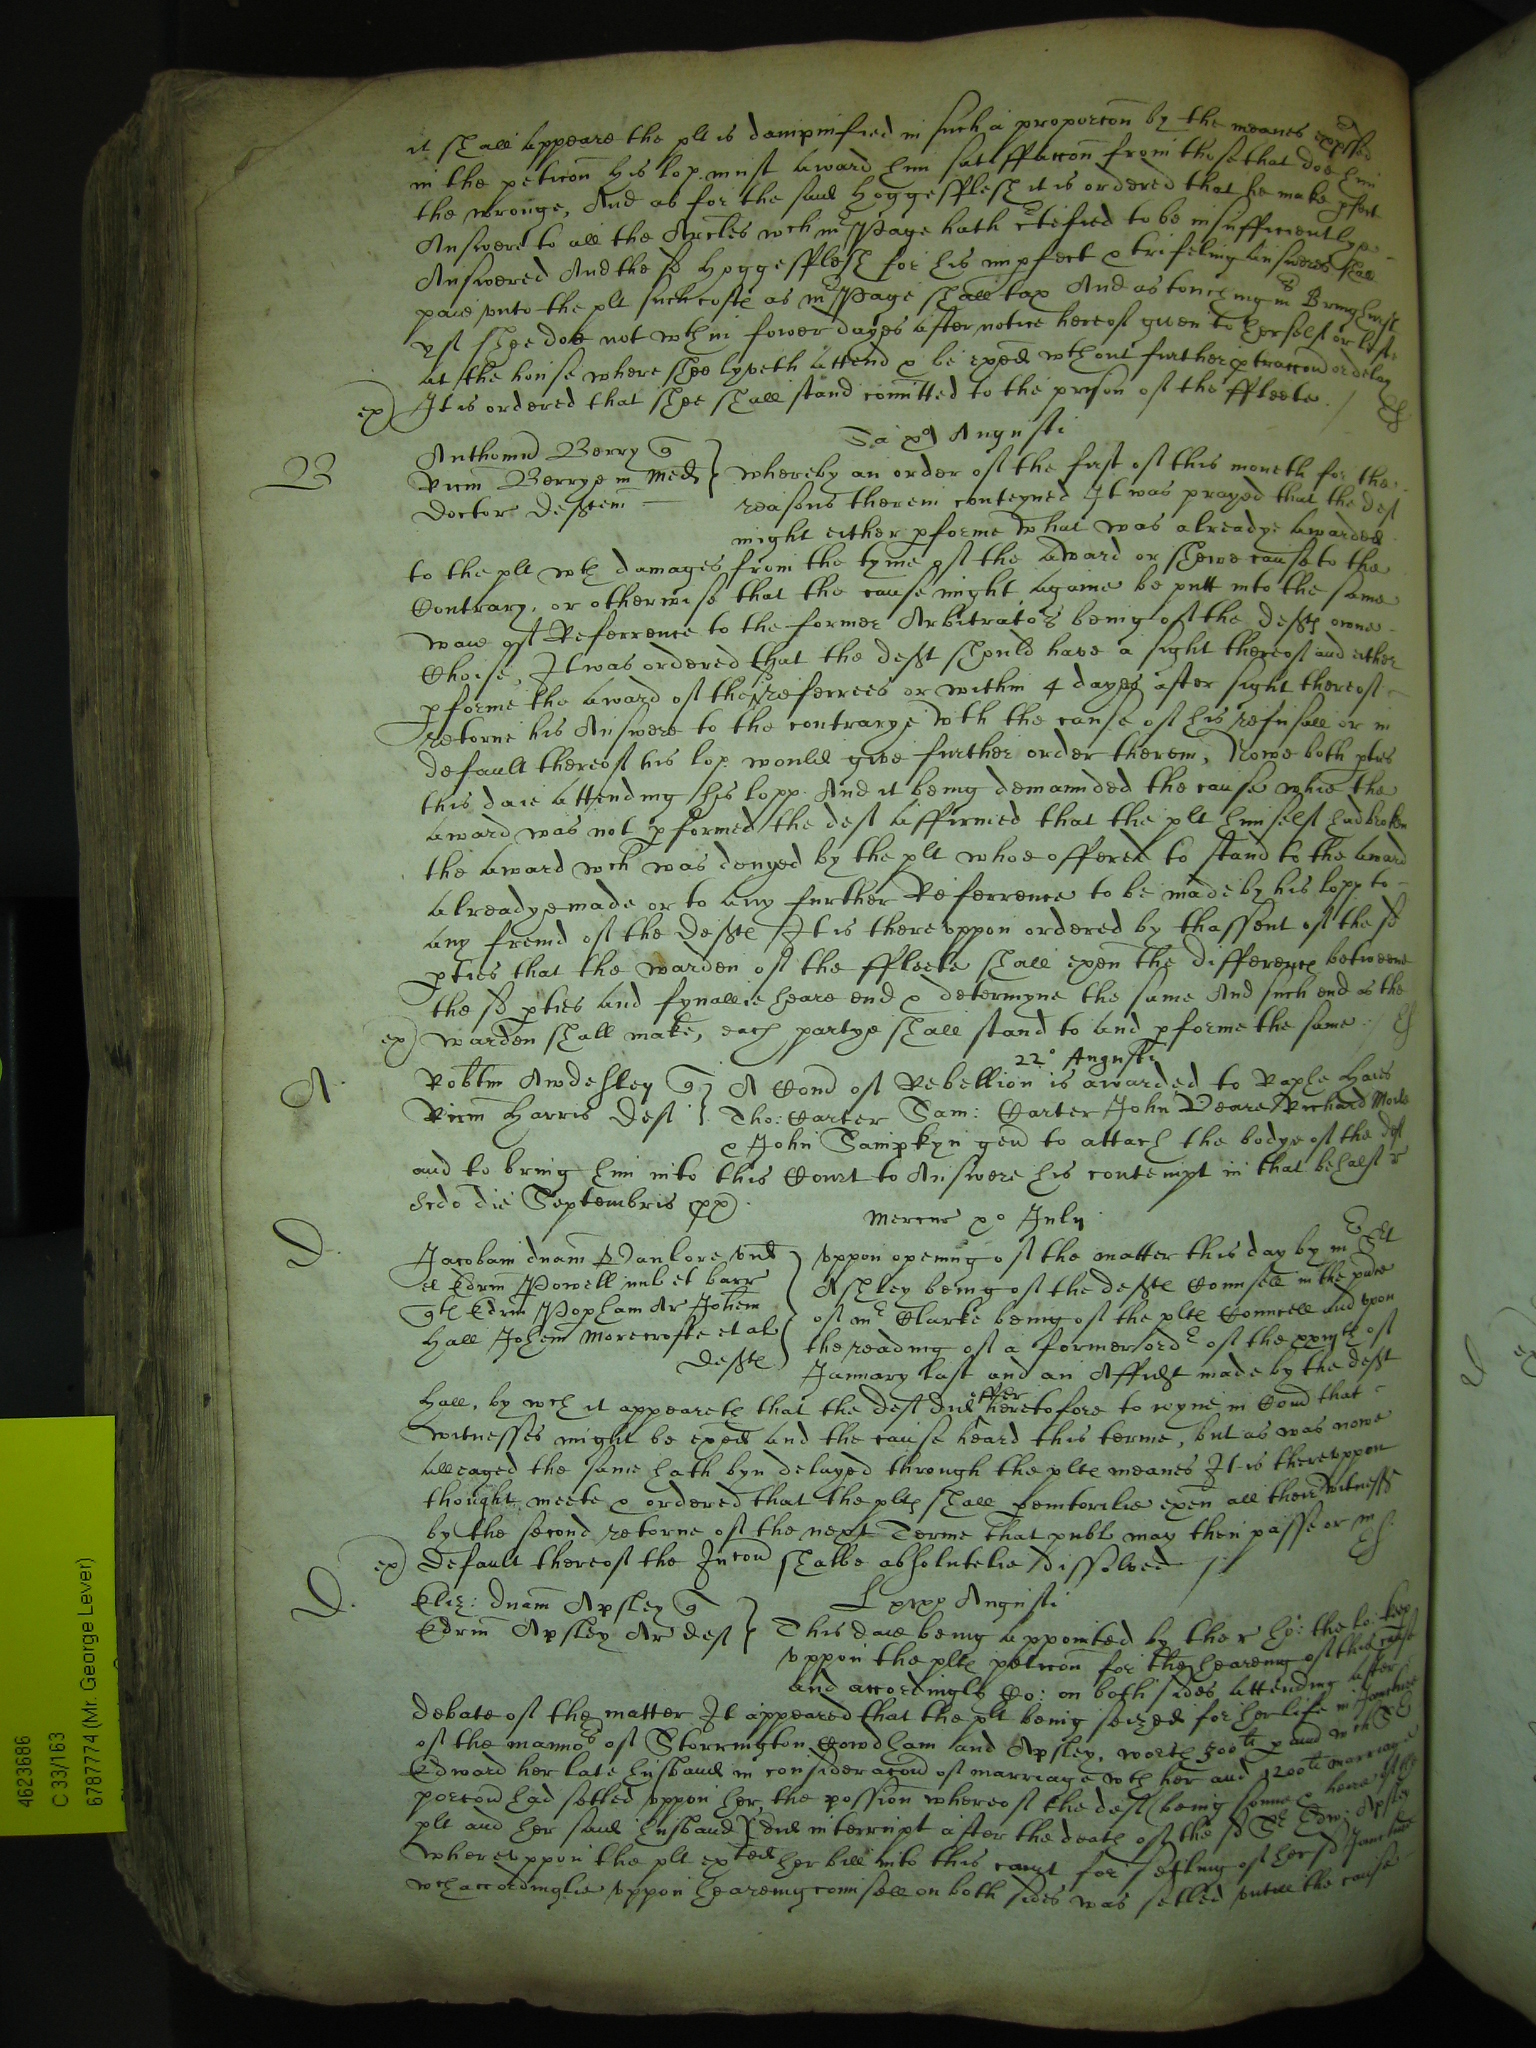 it shall appeare the plt is dampnified in such a proporcon by the meanes exprssed
in the peticon his lop. must award him satisffaccon from those that doe him
the wronge, And as for the said Hoggefflesh it is ordered that he make pfect
Answere to all the Arcles wch mr Page hath ctefied to be insufficientlye
Answered And the sd Hoggefflesh for his impfect & trifeling Answeres shall
paie vnto the plt such costs as mr Page shall tax And as touching mrs Bringhurst
yf shee doe not wthin fower dayes after notice hereof given to herself or left
at the house where shee lyveth attend & be exed wthout further ptraccon or delay
ex) It is ordered that shee shall stand comitted to the prison of the ffleete.
Sa xo Augusti
B
Anthoniu Berry q
Ricm Berrye in Med
Doctor defftem
whereby an order of the first of this moneth for the
reasons therein conteyned It was prayed that the def
might either pforme what was alreadye Awarded
to the plt wth damages from the tyme of the Award or shewe cause to the
Contrary, or otherwise that the cause might Againe be putt into the same
waie of Referrence to the former Arbitrators being of the deffts owne
Choise, It was ordered that the defft should have a sight thereof and either
pforme the Award of the referrees or within 4 dayes after sight thereof
retorne his Answere to the contrarye wth the cause of his refusall or in
default thereof his lop. would give further order therein, Nowe both pties
this daie Attending his lopp. And it being demaunded the cause whie the
Award was not pformed the def Affirmed that the plt himself had broken
the Award wch was denyed by the plt whoe offered to stand to the Award
Alreadye made or to any further Referrence to be made by his lopp to
any freind of the deffts It is therevppon ordered by thassent of the sd
pties that the warden of the ffleete shall exen the differencs betweene
the sd pties and fynallie heare end & determyne the same And such end as the
ex) warden shall make, each partye shall stand to and pforme the same
22o Augusti
A
Robtm Awdesley q
Ricm Harris def
A Comd of Rebellion is awarded to Raphe Haies
Tho: Carter Sam: Carter John Veare Richard
& John Sampkyn gen to attach the bodye of the def
and to bring him into this Court to Answere his contempt in that behalf
die Septembris
Mercur xo July
D
Jacobam dnam Vanlore vid
et Edrm Powell mil et barr
qts Edrm Popham Ar Johem
Hall Johem Morecrofte et al
deffts
Vppon opening of the matter this day by mr Srt
Ashley being of the deffts Counsell in the pnce
of mr Clarke being of the plts Councell and vpon
the reading of a former ordr of the xxvjth of
January last and an Affidt made by the defft
Hall, by wch it appeareth that the deft did offer heretofore to ioyne in Comd that
witnesses might be exed and the cause heard this terme, but as was nowe
alleaged the same hath byn delayed through the plts meanes It is therevppon
thought meete & ordered that the plts shall pemtorilie exen all their witnesss
by the second retorne of the next Terme that publ may then passe or in
ex) default thereof the Incon shalbe absolutelie dissolved
D.
Eliz: dnam Apsley q
Edrm Apsley Ar def
Augusti
This daie being appointed by the r ho: the lo: keep
vppon the plts peticon for the heareing of this cause
and accordingly Co: on both sides attending after
debate of the matter It appeared that the plt being seized for her life in Joincture
of the mannors of Storrington Cowdham and Apsley, worth 500li p annd wch Sr
Edward her late husband in consideracon of marriage wth her and 1200li marriage
porcon had setled vppon her, the possion whereof the deft (being sonne & heire of the
plt and her said husband) did interrupt after the death of the sd Sr Edw: Apsley
wherevppon the plt exted her bill into this court for setling of her sd Joincture
wch accordinglie vppon heareing counsell on both sides was setled vntill the cause
4623686
C 33/163
6787774 (Mr. George Lever)